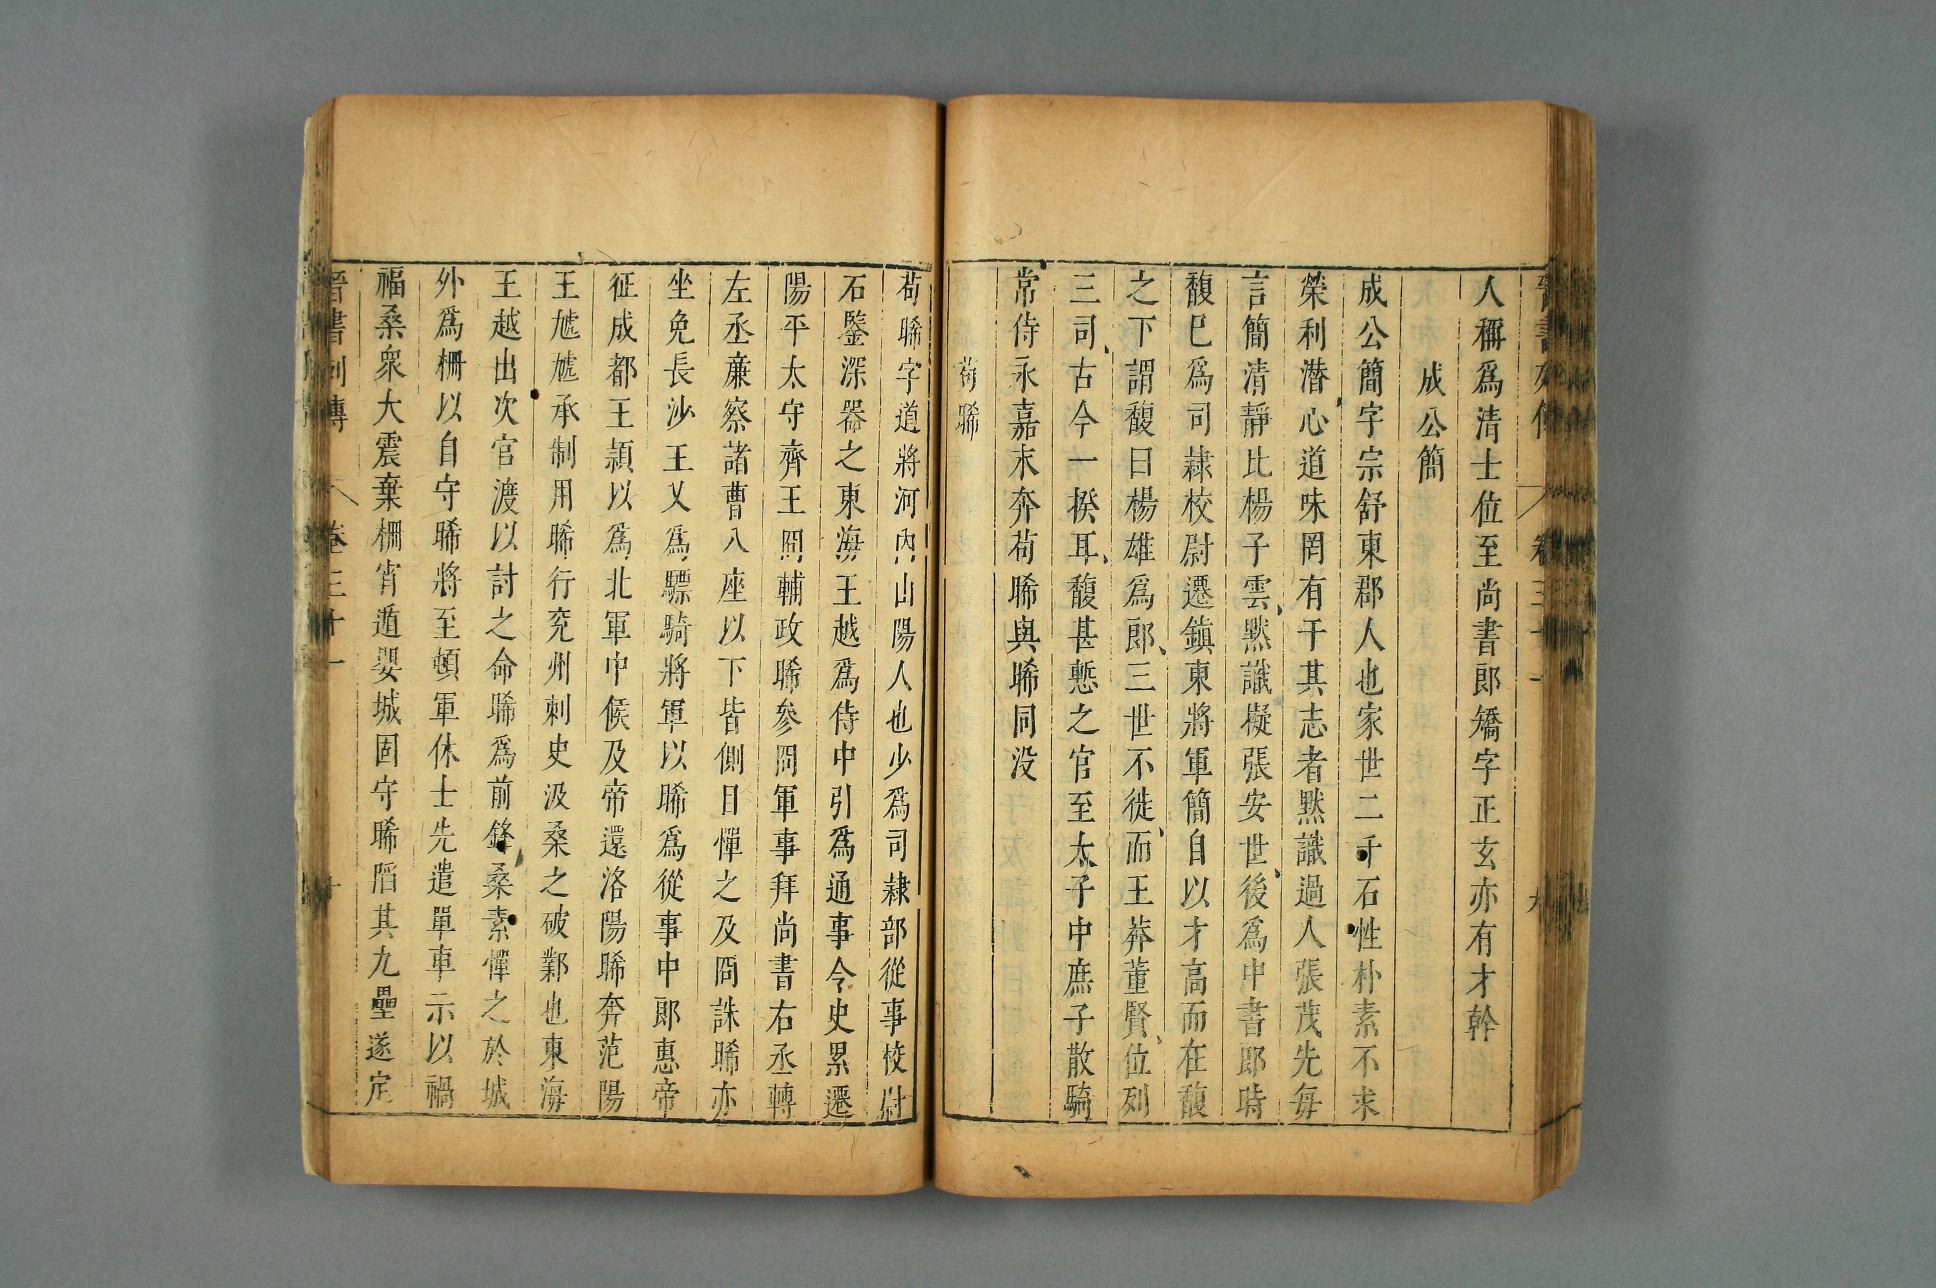 晉書列傳 卷三十一 九
人稱爲清士位至尚書郎矯字正玄亦有才幹
成公簡
成公簡字宗舒東郡人也家世二千石性朴素不求
榮利潛心道味罔有干其志者默識過人張茂先每
言簡清靜比楊子雲默識擬張安世後爲中書郎時
馥已爲司隷校尉遷鎮東將軍簡自以才高而在馥
之下謂馥曰楊雄爲郎三世不徙而王莽董賢位列
三司古今一揆耳馥甚慙之官至太子中庶子散騎
常侍永嘉末奔苟晞與晞同没
苟晞
苟晞字道將河內山陽人也少爲司隷部從事校尉
石鑒深器之東海王越爲侍中引爲通事令史累遷
陽平太守齊王冏輔政晞參冏軍事拜尚書右丞轉
左丞亷察諸曹八座以下皆側目憚之及冏誅晞亦
坐免長沙王乂爲驃騎將軍以晞爲從事中郎惠帝
征成都王穎以爲北軍中候及帝還洛陽晞奔范陽
王虓虓承制用晞行兖州刺史汲桑之破鄴也東海
王越出次官渡以討之命晞爲前鋒桑素憚之於城
外爲柵以自守晞將至頓軍休士先遣單車示以禍
福桑衆大震棄柵宵遁嬰城固守晞陷其九壘遂定
晉書列傳 卷三十一 十